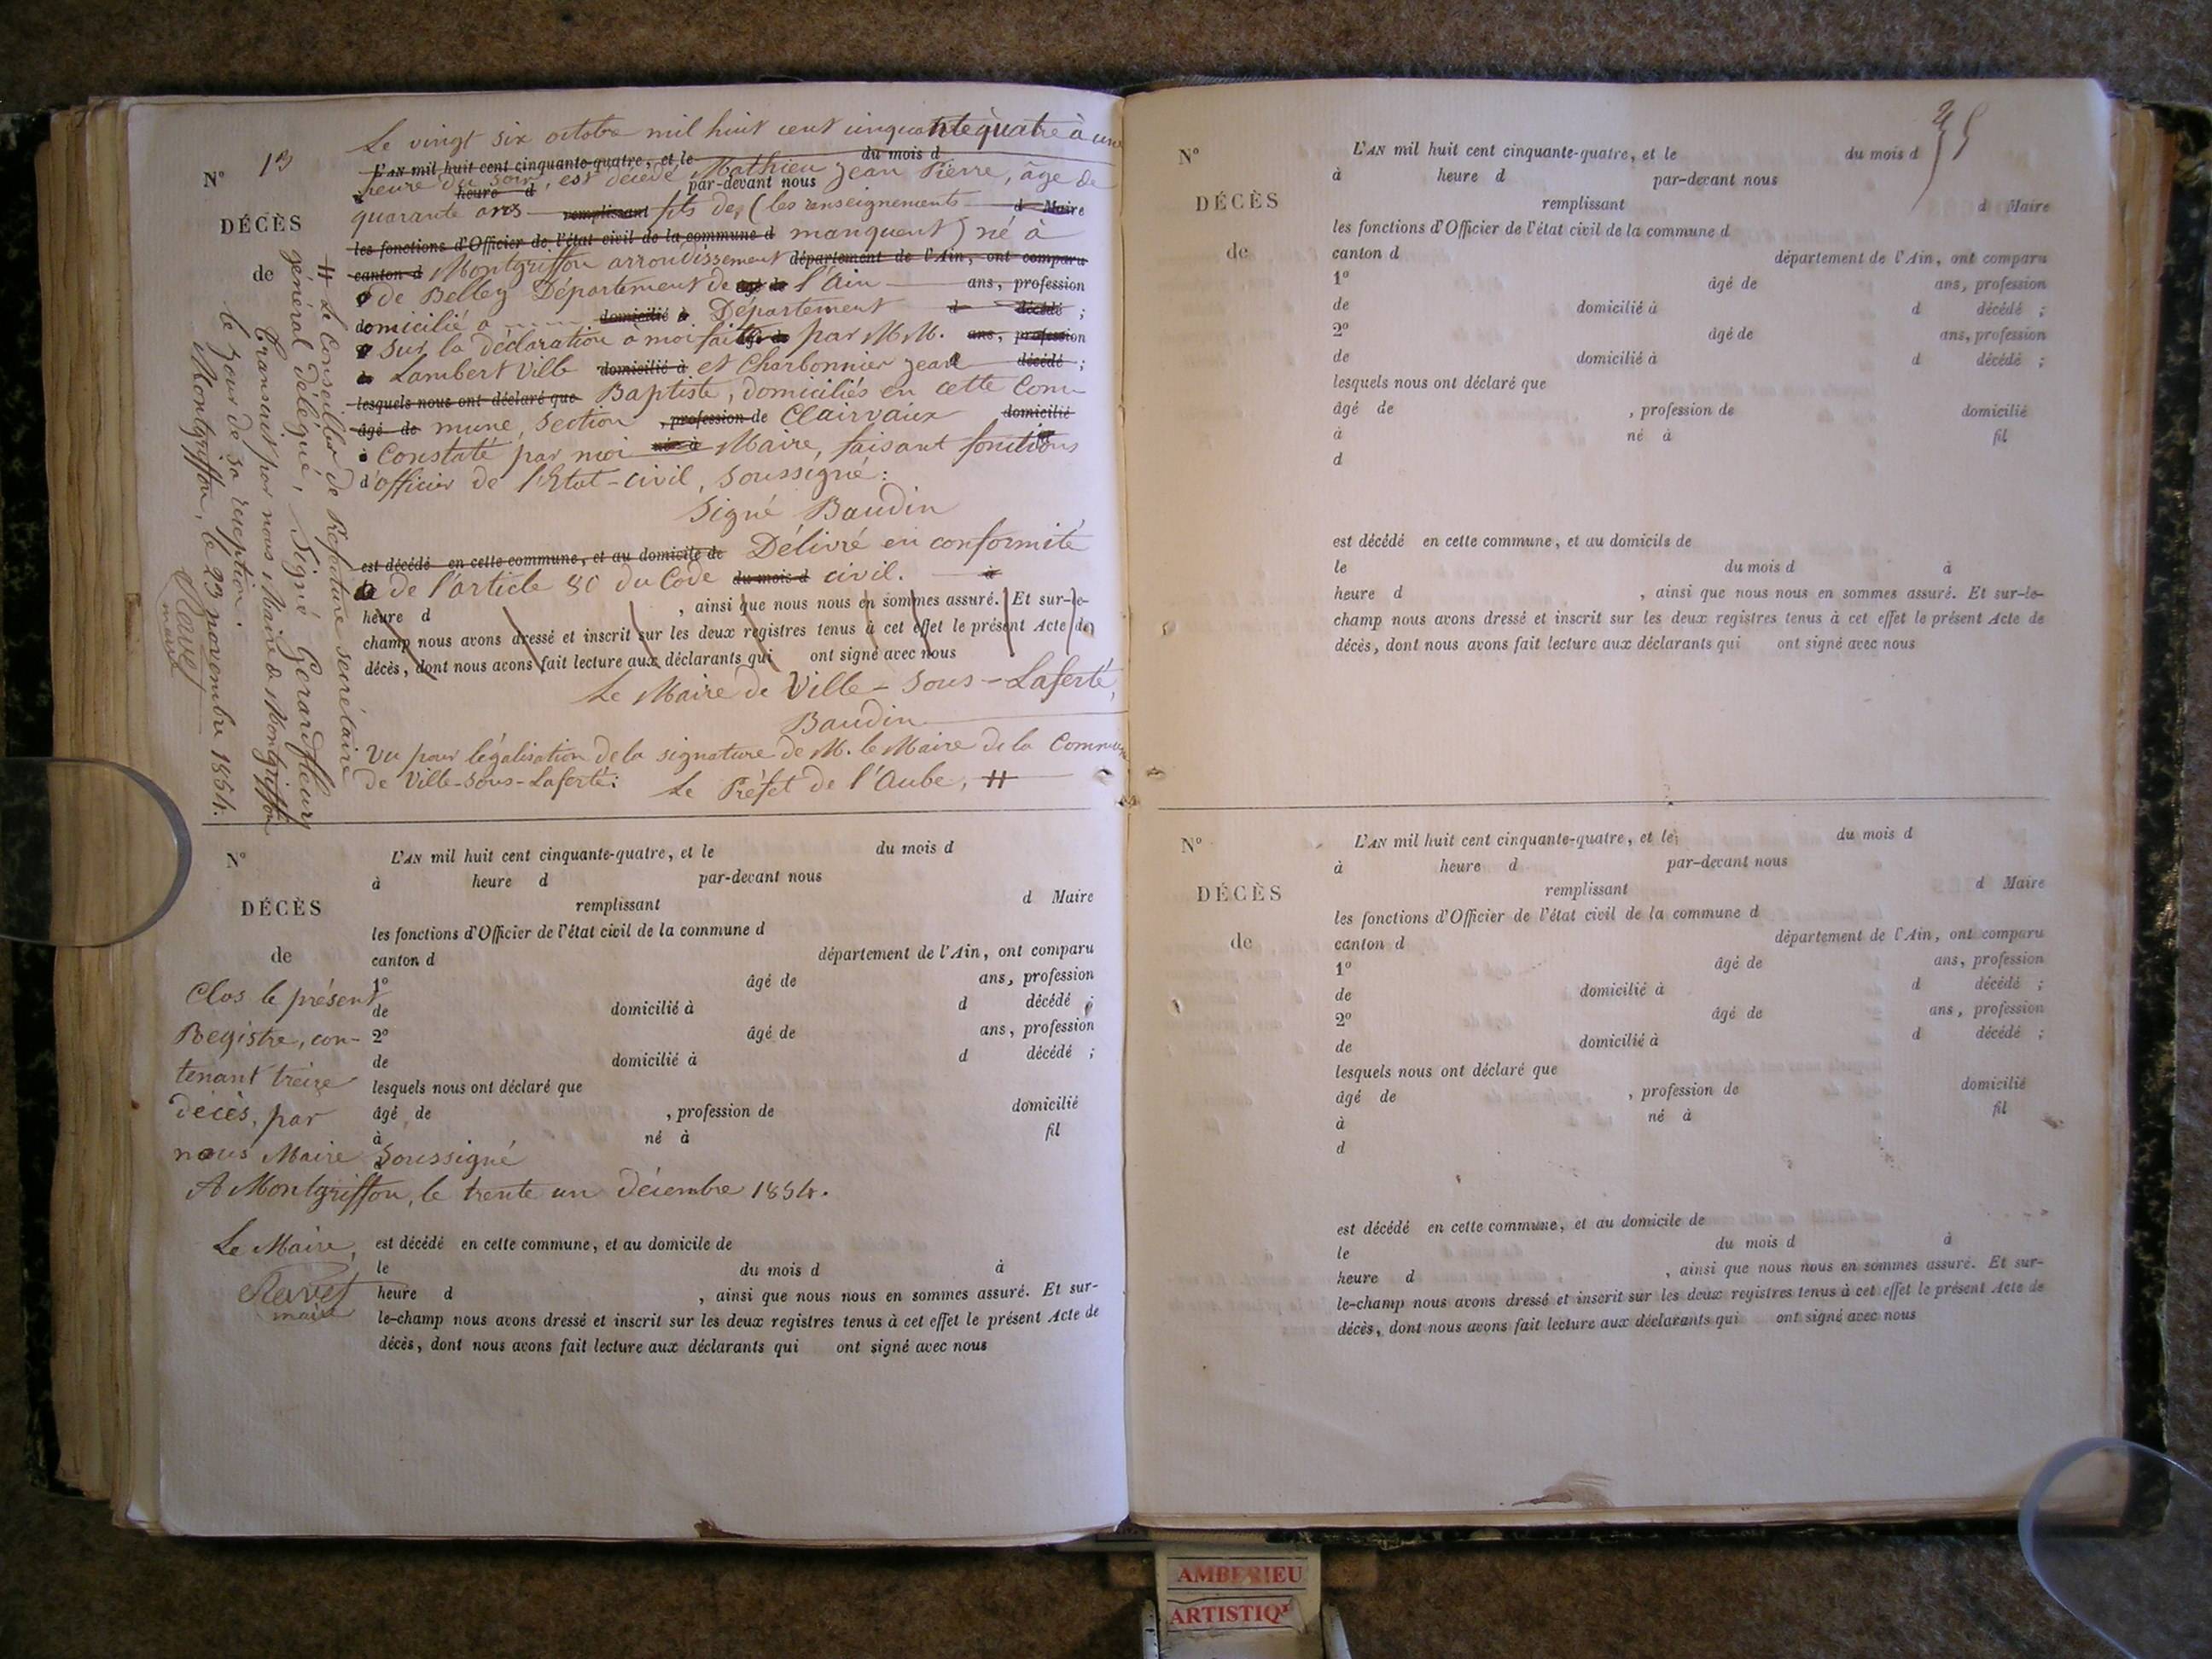 Le vingt six octobre mil huit cent cinquante quatre à une
N° 13
L'AN mil huit cent cinquante-quatre, et le du mois d
heure du soir, est décédé Mathieu Jean Pierre, âgé de
heure d par-devant nous
quarante ans remplissant fils de, (les renseignements d Maire
DÉCÈS
les fonctions d'Officier de l'état civil de la commune d manquent) né à
de
canton d Montgriffon arrondissement département de l'Ain, ont comparu
de Belley Département de l'Ain ans, profession
domicilié à domicilié à Département d décédé ;
Sur la déclaration à moi faite par MM. ans, profession
de Lambert Ville domicilié à et Charbonnier Jean décédé ;
lesquels nous ont déclaré que Baptiste, domiciliés en cette Com-
âgé de mune, Section , profession de Clairvaux domicilié
à Constaté par moi né à Maire, faisant fonctions
d'officier de l'Etat-civil, soussigné :
Signé Baudin
est décédé en cette commune, et au domicile de Délivré en conformité
de l'article 80 du Code du mois d civil. à
heure d , ainsi que nous nous en sommes assuré. Et sur-le-
champ nous avons dressé et inscrit sur les deux registres tenus à cet effet le présent Acte de
décès, dont nous avons fait lecture aux déclarants qui ont signé avec nous
Le Maire de Ville-Sous-Laferté,
Baudin
Vu pour légalisation de la signature de M. le Maire de la Commune
de Ville-Sous-Laferté : Le Préfet de l'Aube, #
# Le Conseiller de Préfecture secrétaire
général délégué, Signé Gerardfleury
Transcrit par nous Maire de Montgriffon
le jour de sa réception.
Montgriffon, le 23 novembre 1854.
maire
N°
L'AN mil huit cent cinquante-quatre, et le du mois d
à heure d par-devant nous
DÉCÈS
remplissant d Maire
les fonctions d'Officier de l'état civil de la commune d
de
canton d département de l'Ain, ont comparu
1° âgé de ans, profession
Clos le présent
de domicilié à d décédé ;
Registre, con-
2° âgé de ans, profession
de domicilié à d décédé ;
tenant treize
lesquels nous ont déclaré que
décès, par
âgé de , profession de domicilié
à né à fil
nous Maire Soussigné
d
A Montgriffon, le trente un décembre 1854.
Le Maire,
est décédé en cette commune, et au domicile de
le du mois d à
heure d , ainsi que nous nous en sommes assuré. Et sur-
maire
le-champ nous avons dressé et inscrit sur les deux registres tenus à cet effet le présent Acte de
décès, dont nous avons fait lecture aux déclarants qui ont signé avec nous
N°
L'AN mil huit cent cinquante-quatre, et le du mois d
à heure d par-devant nous
DÉCÈS
remplissant d Maire
les fonctions d'Officier de l'état civil de la commune d
de
canton d département de l'Ain, ont comparu
1° âgé de ans, profession
de domicilié à d décédé ;
2° âgé de ans, profession
de domicilié à d décédé ;
lesquels nous ont déclaré que
âgé de , profession de domicilié
à né à fil
d
est décédé en cette commune, et au domicile de
le du mois d à
heure d , ainsi que nous nous en sommes assuré. Et sur-le-
champ nous avons dressé et inscrit sur les deux registres tenus à cet effet le présent Acte de
décès, dont nous avons fait lecture aux déclarants qui ont signé avec nous
N°
L'AN mil huit cent cinquante-quatre, et le du mois d
à heure d par-devant nous
DÉCÈS
remplissant d Maire
les fonctions d'Officier de l'état civil de la commune d
de
canton d département de l'Ain, ont comparu
1° âgé de ans, profession
de domicilié à d décédé ;
2° âgé de ans, profession
de domicilié à d décédé ;
lesquels nous ont déclaré que
âgé de , profession de domicilié
à né à fil
d
est décédé en cette commune, et au domicile de
le du mois d à
heure d , ainsi que nous nous en sommes assuré. Et sur-
le-champ nous avons dressé et inscrit sur les deux registres tenus à cet effet le présent Acte de
décès, dont nous avons fait lecture aux déclarants qui ont signé avec nous
AMBERIEU
ARTISTIQ